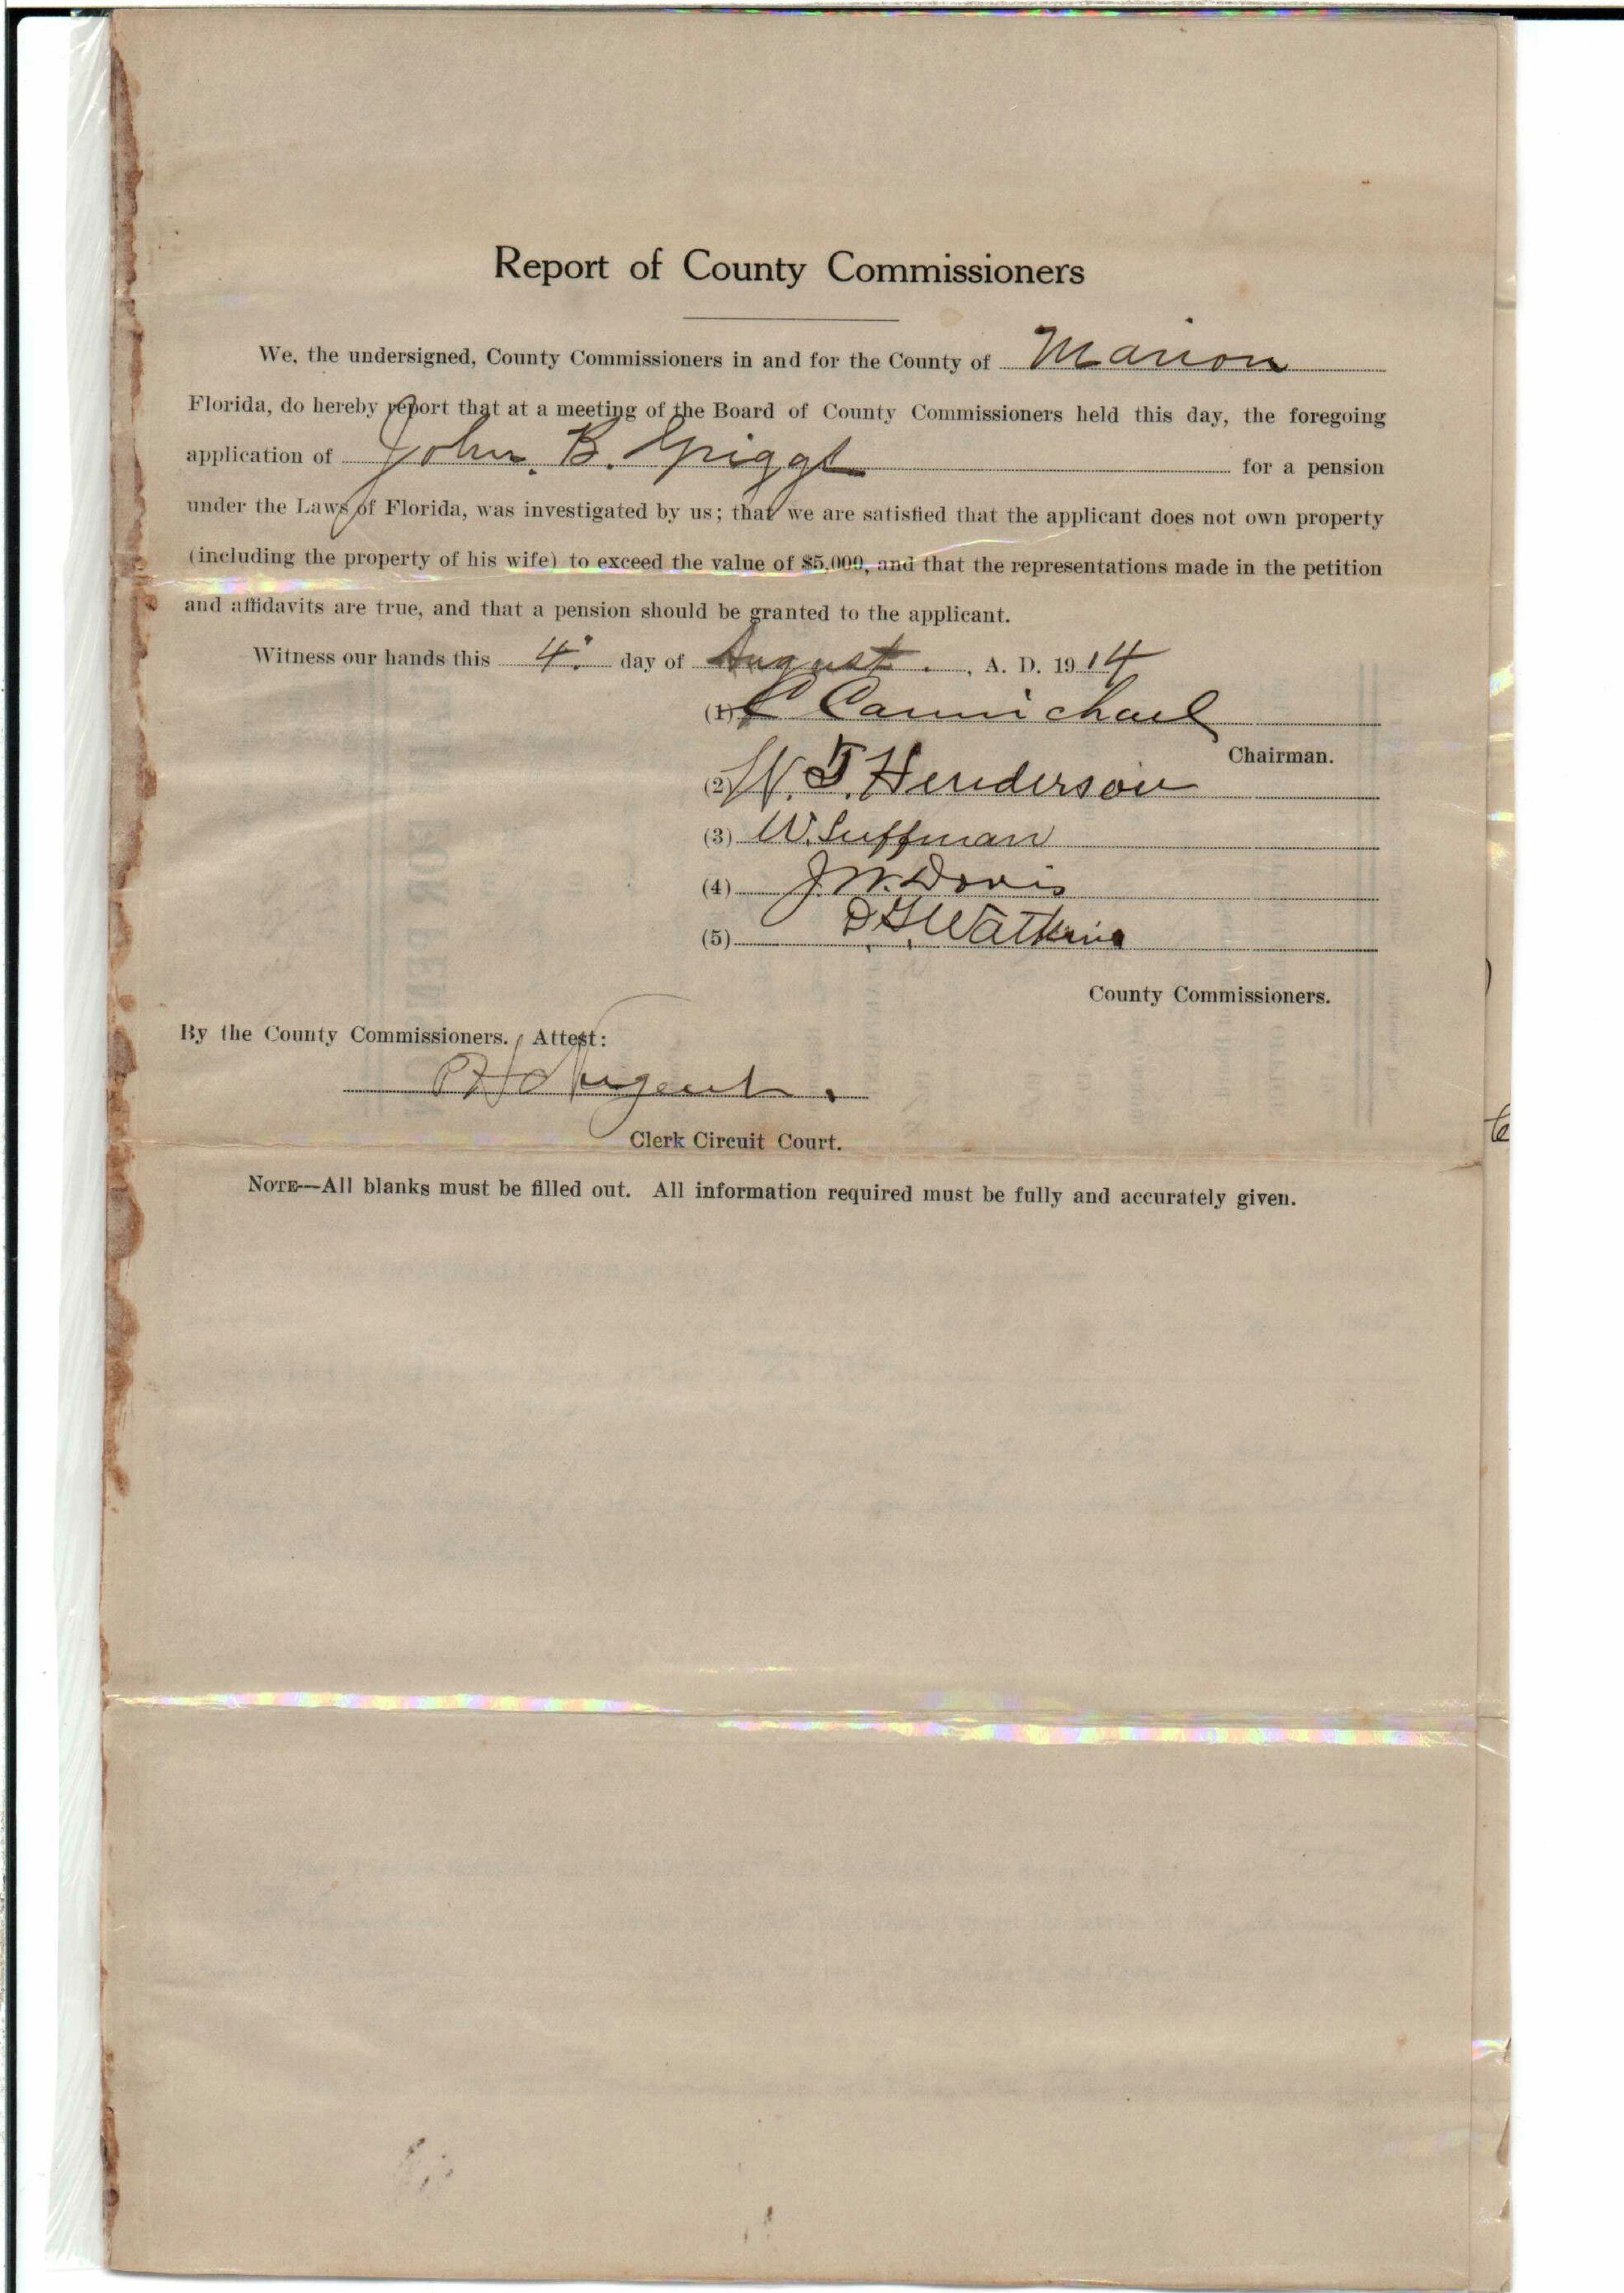 Report of County Commissioners
We, the undersigned, County Commissioners in and for the County of Marion
Florida, do hereby report that at a meeting of the Board of County Commissioners held this day, the foregoing
application of John. B. Griggs for a pension
under the Laws of Florida, was investigated by us; that we are satisfied that the applicant does not own property
(including the property of his wife) to exceed the value of $5,000, and that the representations made in the petition
and affidavits are true, and that a pension should be granted to the applicant.
Witness our hands this 4. day of August. , A. D. 1914
(1) C Carmichael
Chairman.
(2) W. J. Henderson
(3) W. Luffman
(4) J. W. Davis
(5) D. G. Watkins
County Commissioners.
By the County Commissioners. Attest:
P H Nugent.
Clerk Circuit Court.
NOTE—All blanks must be filled out. All information required must be fully and accurately given.